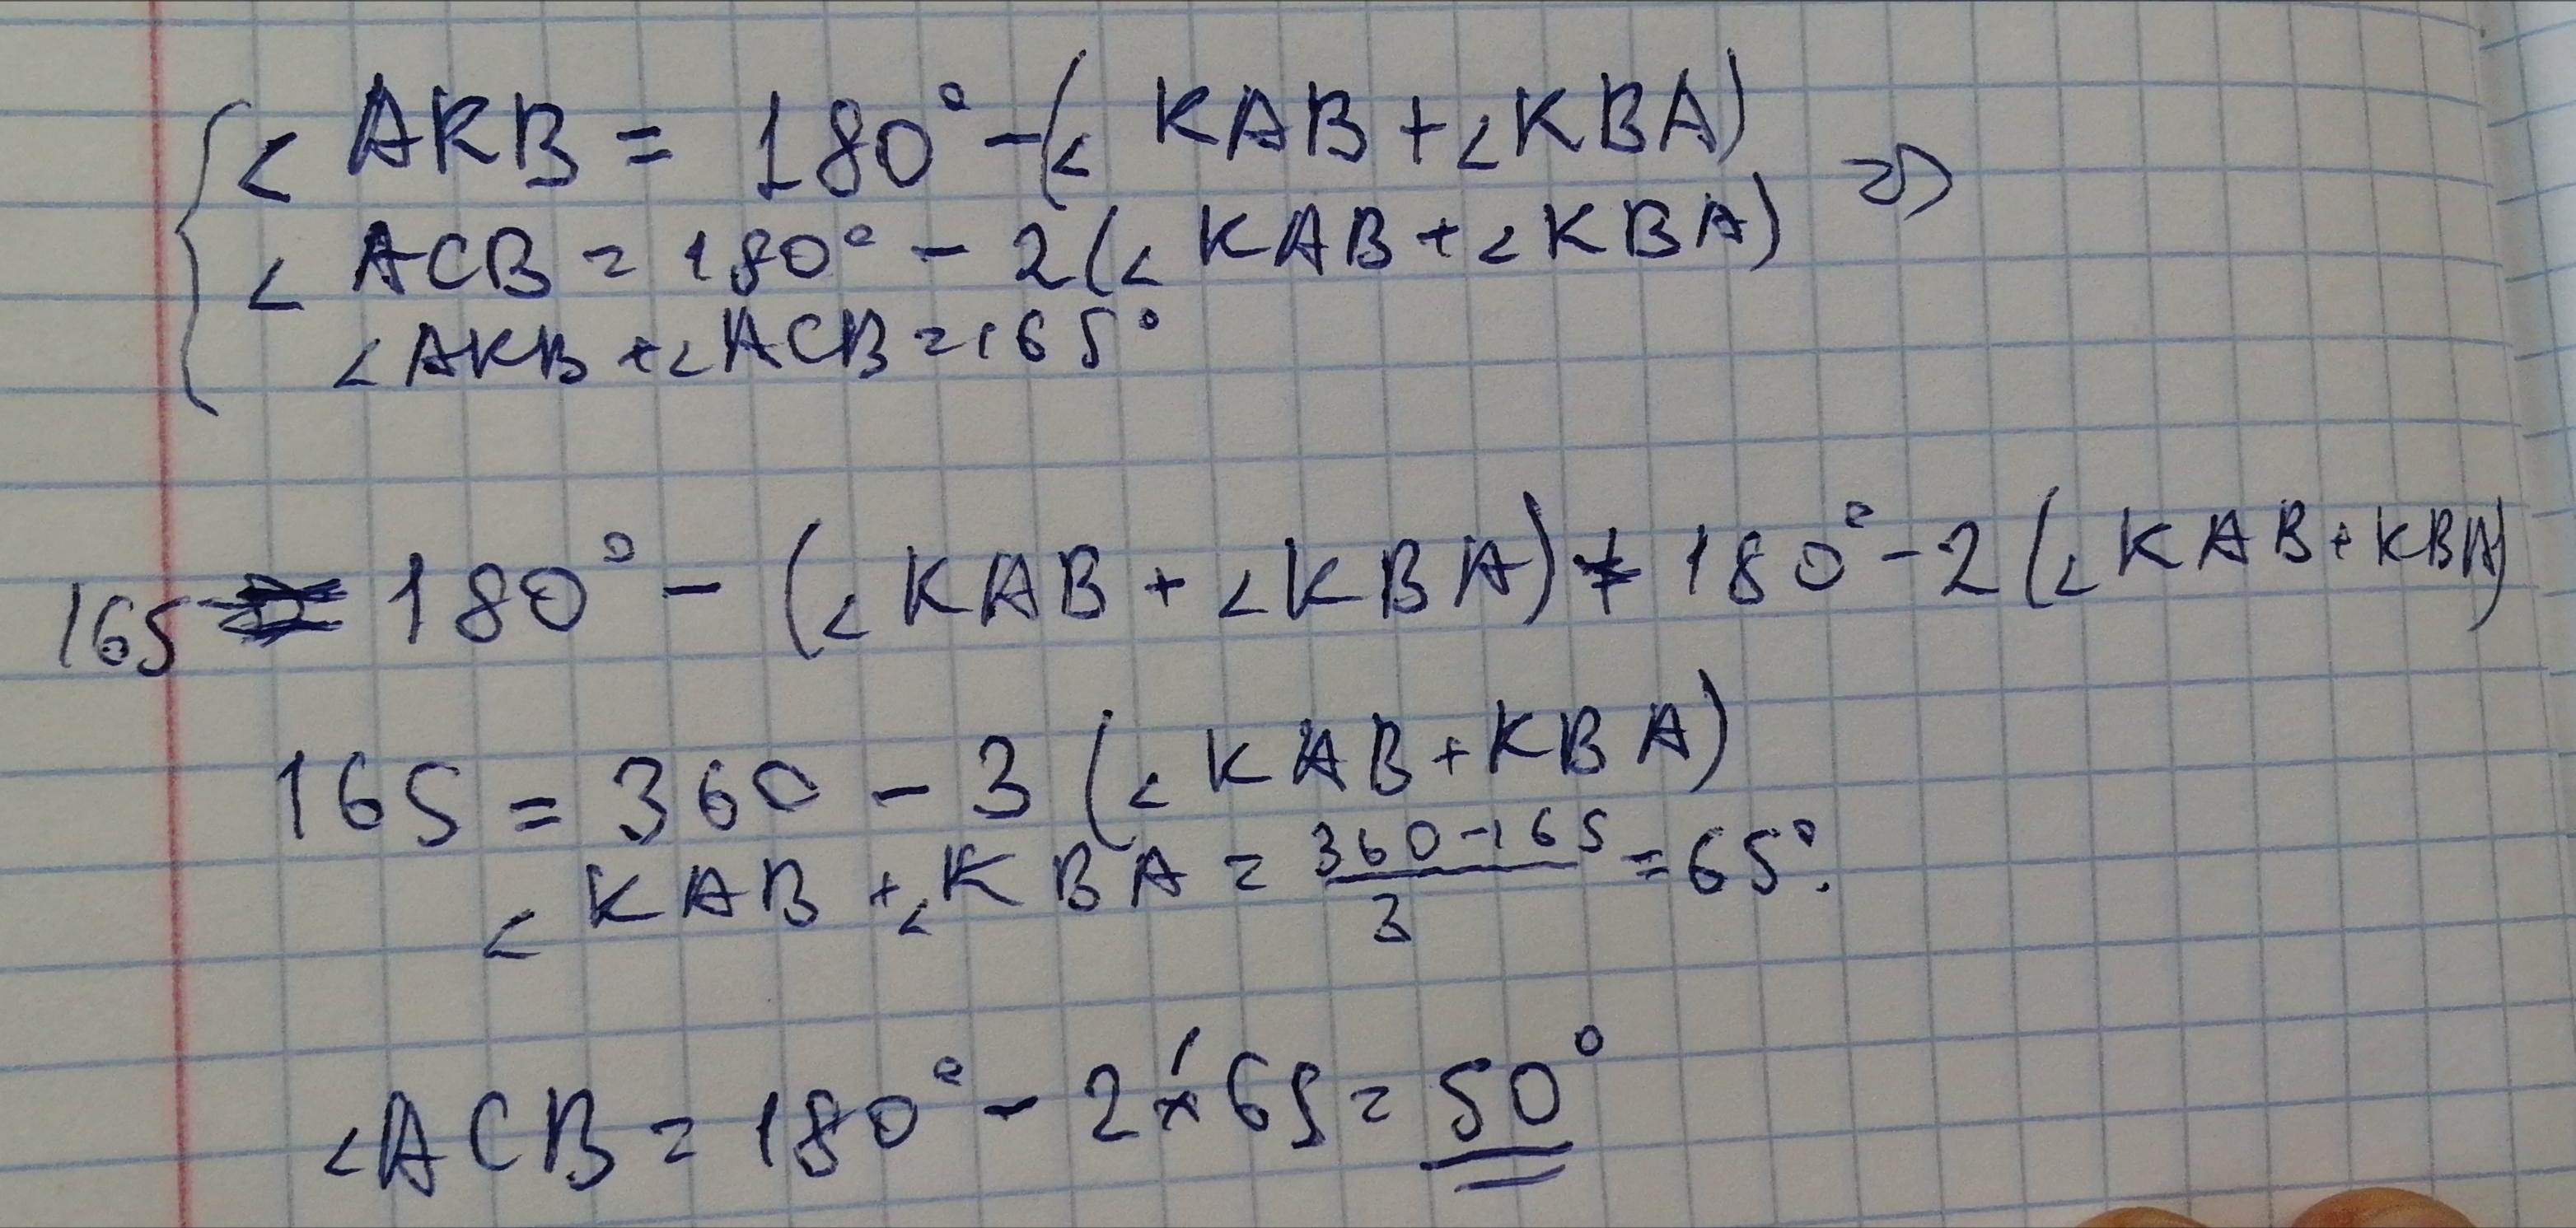 ∠AKB = 180° - (∠KAB + ∠KBA)
∠ACB = 180° - 2(∠KAB + ∠KBA) ⇒
∠AKB + ∠ACB = 165°
165 = 180° - (∠KAB + ∠KBA) + 180° - 2(∠KAB + KBA)
165 = 360 - 3(∠KAB + KBA)
∠KAB + ∠KBA = (360-165)/3 = 65°.
∠ACB = 180° - 2 × 65 = 50°